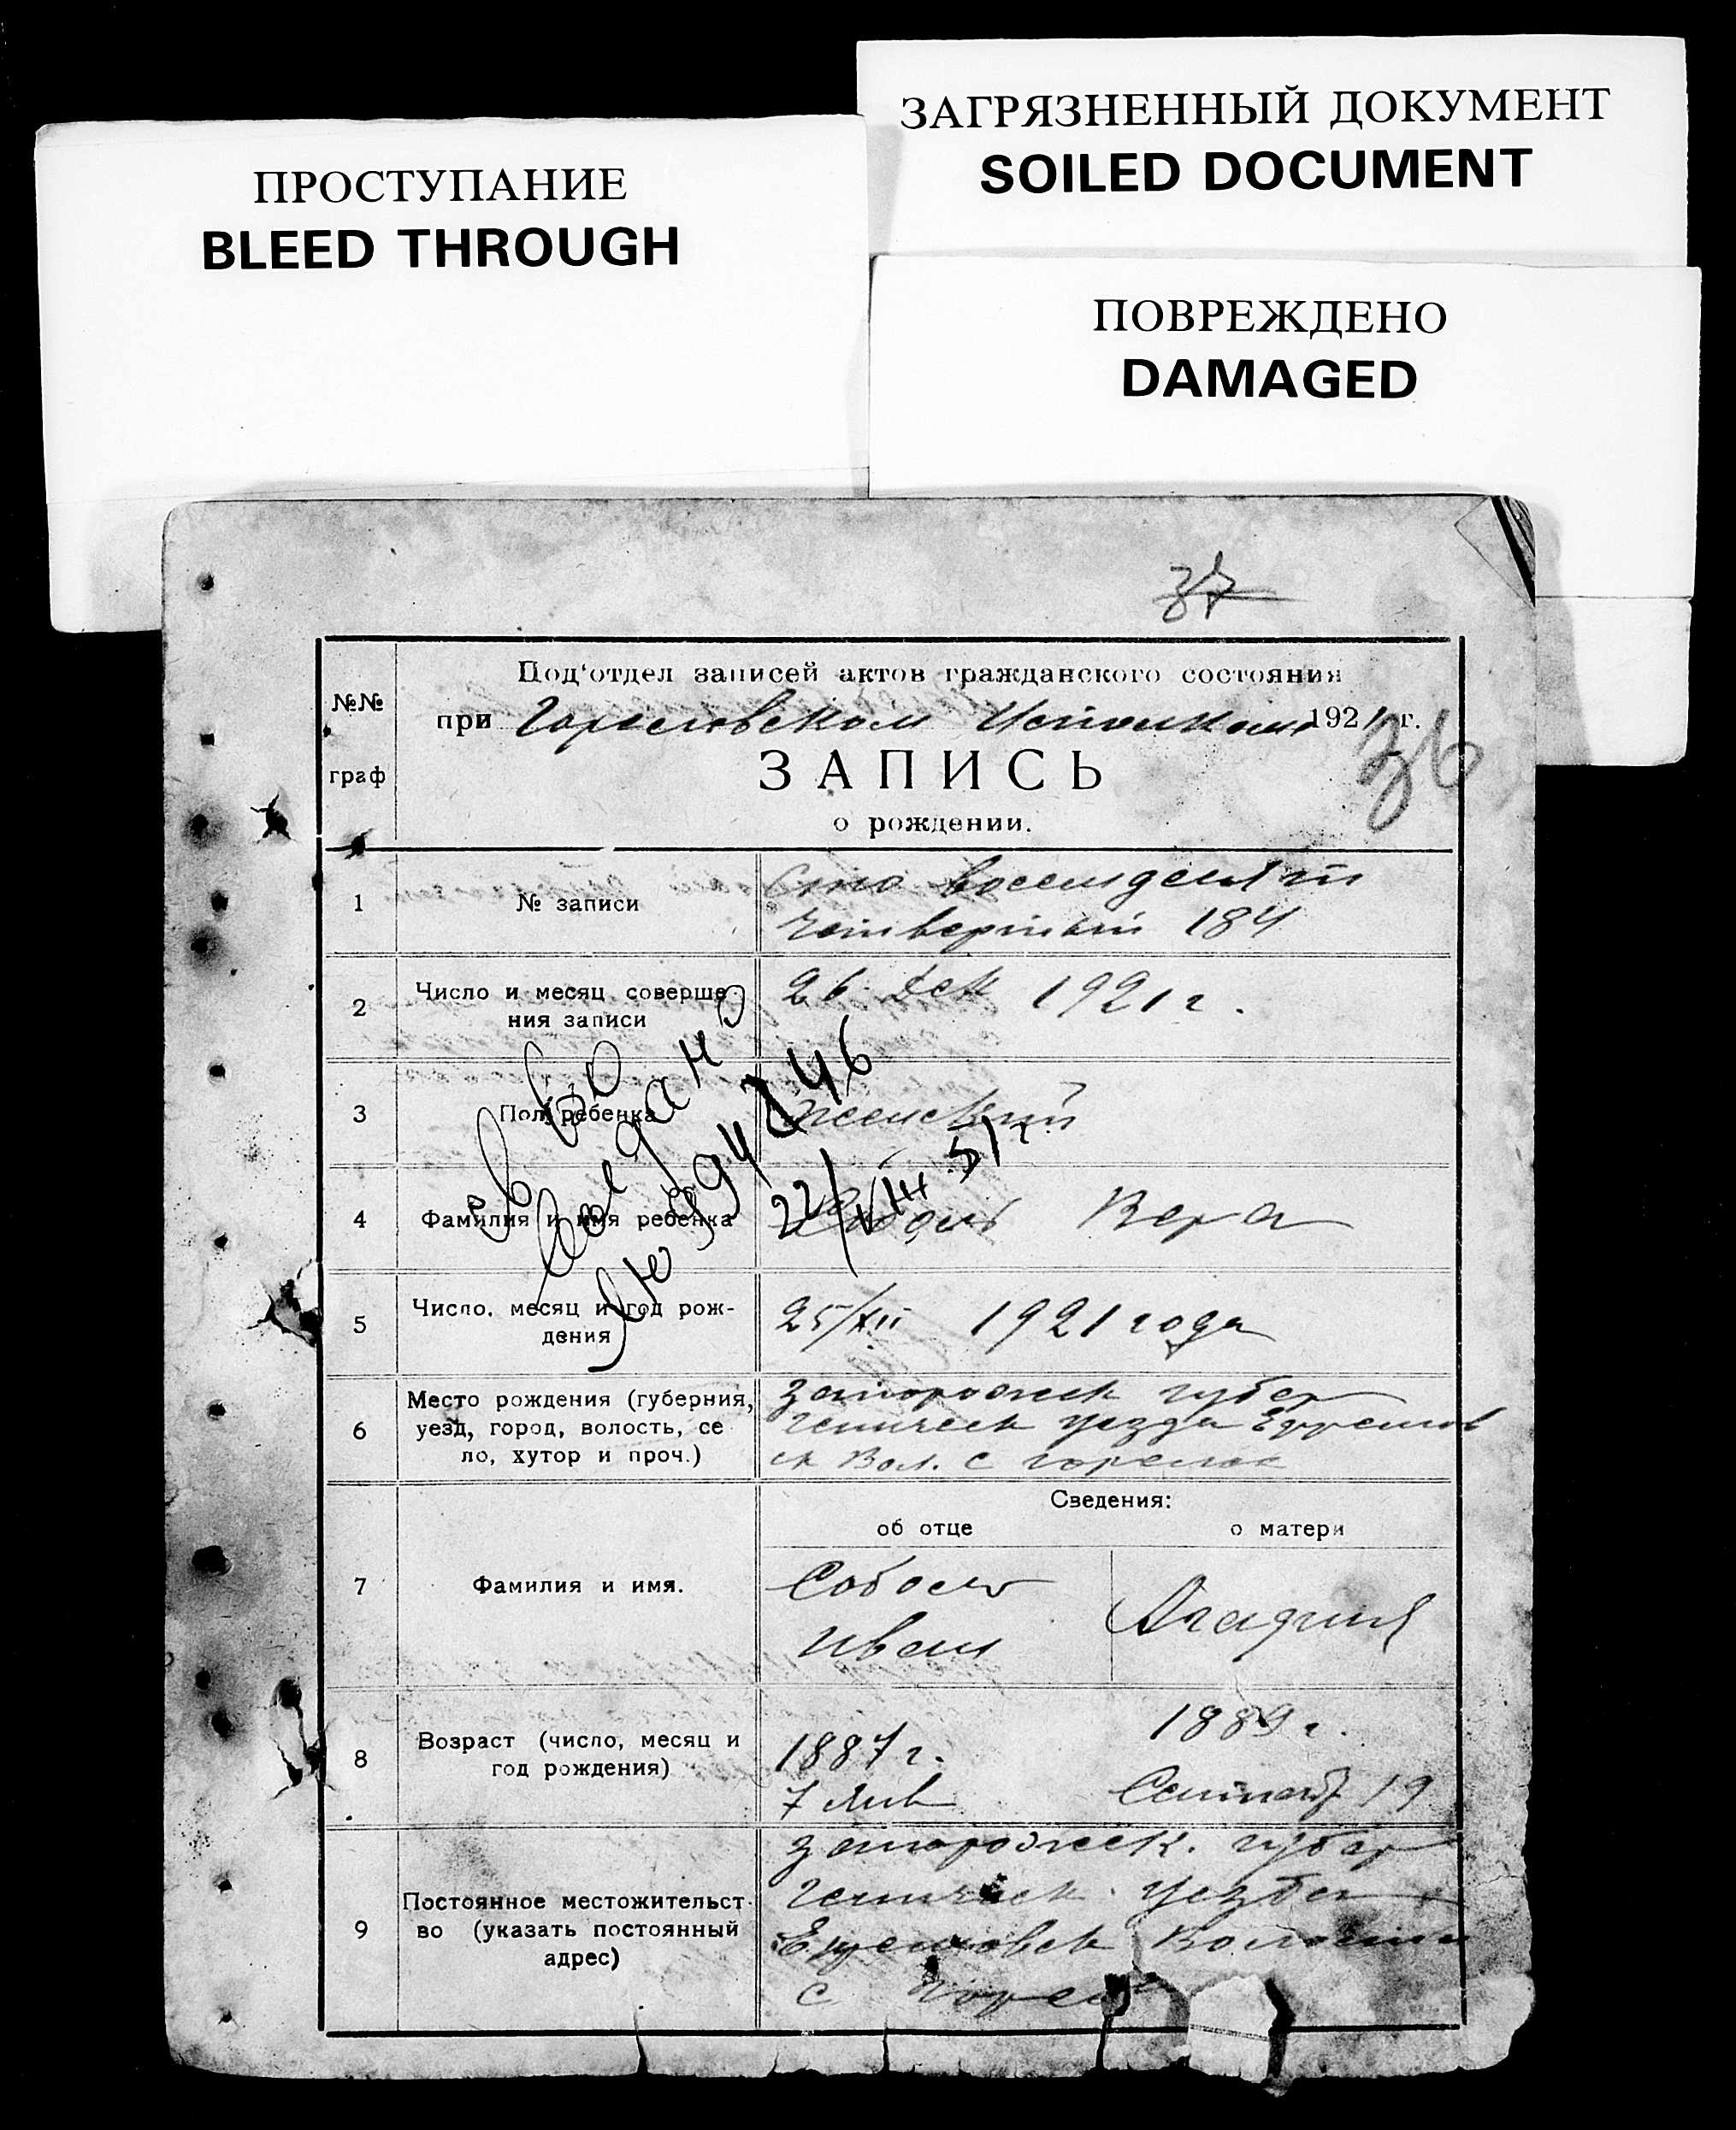 ЗАГРЯЗНЕННЫЙ ДОКУМЕНТ
SOILED DOCUMENT
ПРОСТУПАНИЕ
BLEED THROUGH
ПОВРЕЖДЕНО
DAMAGED
37
№№
граф
Под'отдел записей актов гражданского состояния
при Гореловском Исполком 1921 г.
36
ЗАПИСЬ
о рождении.
1
№ записи
Сто восемдесят
четвертый 184
2
Число и месяц соверше-
ния записи
26 Дек 1921 г.
3
Пол ребенка
женский
4
Фамилия и имя ребенка
Вера
св во
выдано
22/VIII 51 г.
5
Число, месяц и год рож-
дения
25/XII 1921 года
6
Место рождения (губерния,
уезд, город, волость, се
ло, хутор и проч.)
Запорожск губер
Геническ уезда Ефремов
ск Вол. с Горелое
Сведения:
об отце
о матери
7
Фамилия и имя.
Соболь
Иван
8
Возраст (число, месяц и
год рождения)
1887 г.
7 Янв
1889 г.
Сентяб 19
9
Постоянное местожительст-
во (указать постоянный
адрес)
Запорожск. губер
Геническ. уезда
Ефремовск Волости
с